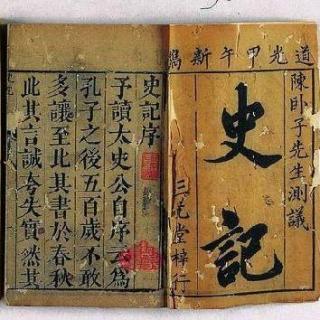 道光甲午新鐫
陳卧子先生測議
史記
三元堂梓行
史記序
予讀太史公自序云為
孔子之後五百歲不敢
多讓至比其書於春秋
此其言誠夸失實然其